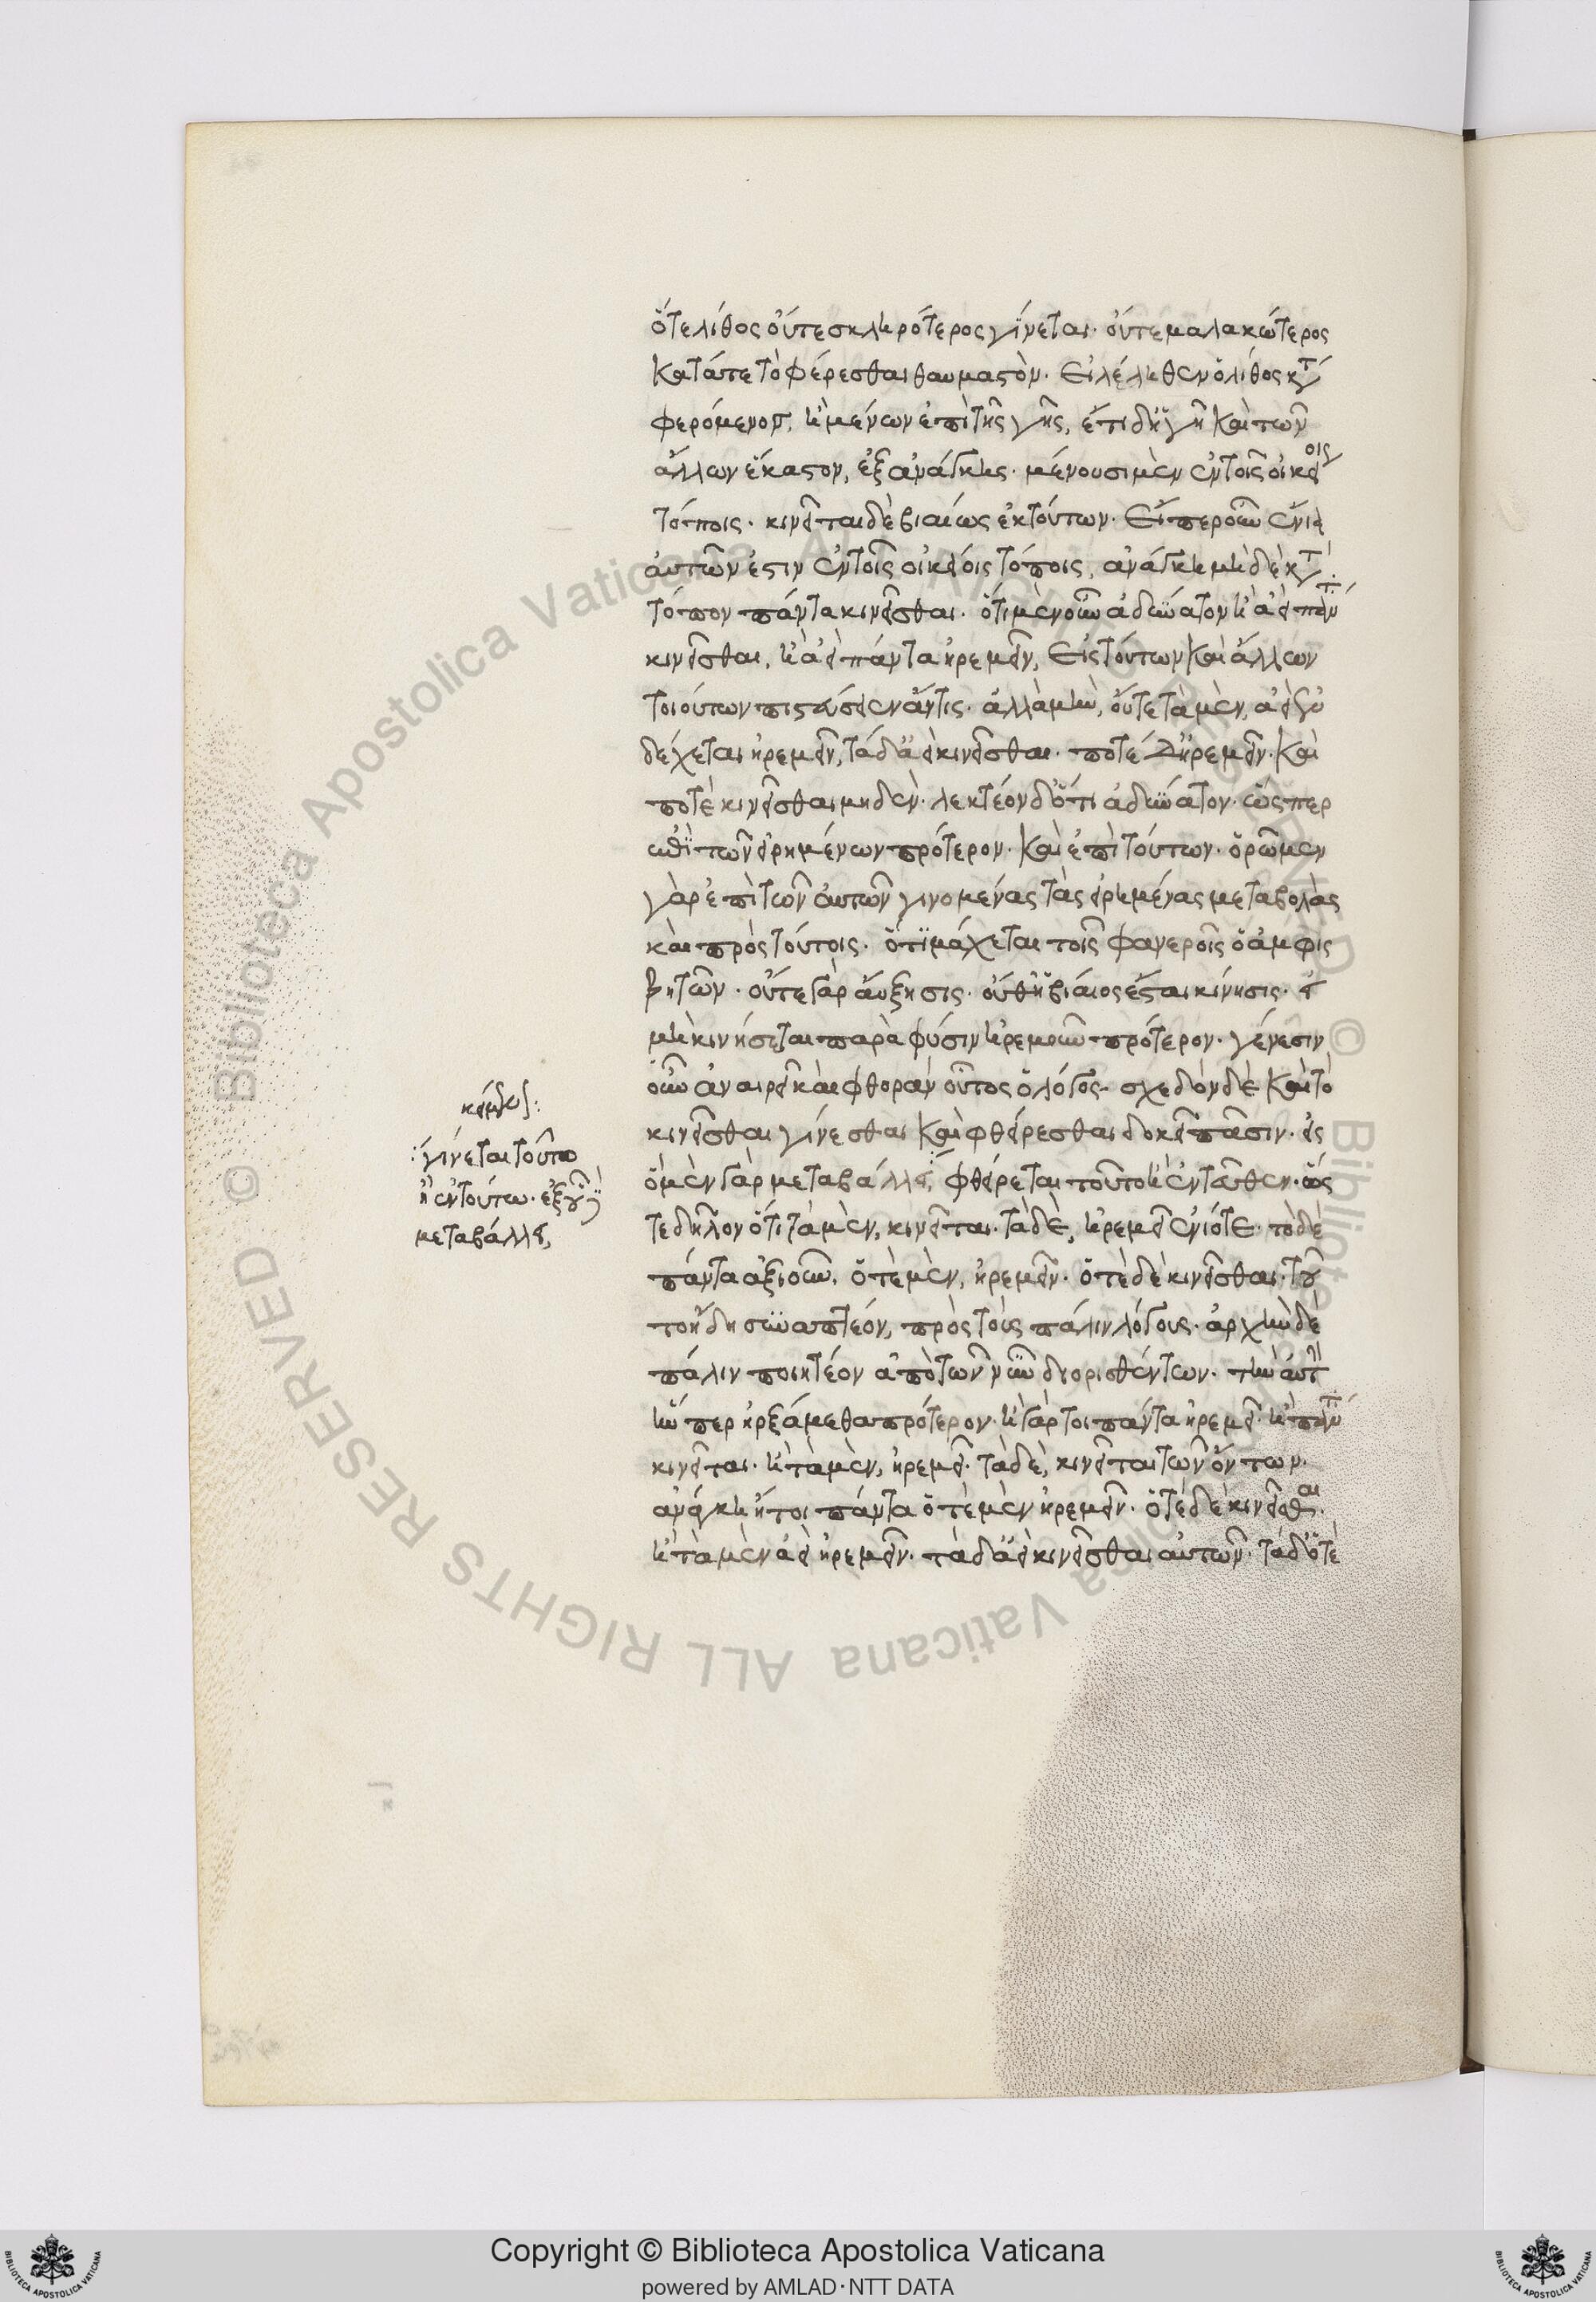 ὅτε λίθος οὔτε σκληρότερος γίνεται· οὔτε μαλακώτερος
κατά τε τὸ φέρεσθαι θαυμαστὸν· εἰ λέληθεν ὁ λίθος κτ
φερόμενος, ἢ μένων ἐπὶ τῆς γῆς, ἔτι δ ἡ γῆ καὶ τῶν
ἄλλων ἕκαστον, ἐξ ἀνάγκης· μένουσι μὲν ἐν τοῖς οἰκείοις
τόποις· κινεῖται δὲ βιαίως ἐκ τούτων· εἴπερ οὖν ἔνια
αὐτῶν ἐστιν ἐν τοῖς οἰκείοις τόποις, ἀνάγκη μηδὲ κτ
τόπον πάντα κινεῖσθαι· ὅτι μὲν οὖν ἀδύνατον ἢ ἀεὶ πάντα
κινεῖσθαι, ἢ ἀεὶ πάντα ἠρεμεῖν, ἐκ τούτων καὶ ἄλλων
τοιούτων πιστεύσειεν ἄν τις· ἀλλὰ μὴν, οὔτε τὰ μὲν, ἀεὶ ἐν
δέχεται ἠρεμεῖν, τὰ δ ἀεὶ κινεῖσθαι· ποτὲ δ ἠρεμεῖν· καὶ
ποτὲ κινεῖσθαι μηδὲν· λεκτέον δ ὅτι ἀδύνατον· ὥσπερ
ἐπὶ τῶν εἰρημένων πρότερον· καὶ ἐπὶ τούτων· ὁρῶμεν
γὰρ ἐπὶ τῶν αὐτῶν γινομένας τὰς εἰρημένας μεταβολὰς
καὶ πρὸς τούτοις· ὅτι μάχεται τοῖς φανεροῖς ὁ ἀμφισ
βητῶν· οὔτε γὰρ αὔξησις· οὔθ ἡ βίαιος ἔσται κίνησις· εἰ
μὴ κινήσεται παρὰ φύσιν ἠρεμοῦν πρότερον· γένεσιν
οὖν ἀναιρεῖ καὶ φθορὰν οὗτος ὁ λόγος· σχεδὸν δὲ καὶ τὸ
κινεῖσθαι γίνεσθαι καὶ φθείρεσθαι δοκεῖ πᾶσιν· εἰς
ὃ μὲν γὰρ μεταβάλλει, φθείρεται τοῦτο ἢ ἐντεῦθεν· ὥς
τε δῆλον ὅτι τὰ μὲν, κινεῖται· τὰ δὲ, ἠρεμεῖ ἐνίοτε· τὸ δὲ
πάντα ἀξιοῦν, ὁτὲ μὲν, ἠρεμεῖν· ὁτὲ δὲ κινεῖσθαι· τοῦ
το ἤδη συναπτέον, πρὸς τοὺς πάλιν λόγους· ἀρχὴν δὲ
πάλιν ποιητέον ἀπὸ τῶν νῦν διορισθέντων· τὴν αὐτὴν
ἥνπερ ἠρξάμεθα πρότερον· ἢ γάρ τοι πάντα ἠρεμεῖ· ἢ πάντα
κινεῖται· ἢ τὰ μὲν, ἠρεμεῖ· τὰ δὲ, κινεῖται τῶν ὄντων·
ἀνάγκη ἤτοι πάντα ὁτὲ μὲν ἠρεμεῖν· ὁτὲ δὲ κινεῖσθαι·
ἢ τὰ μὲν ἀεὶ ἠρεμεῖν· τὰ δ ἀεὶ κινεῖσθαι αὐτῶν· τὰ δ ὁτὲ
γίνεται τοῦτο
ἢ ἐν τούτω· ἐξ οὗ
μεταβάλλει,